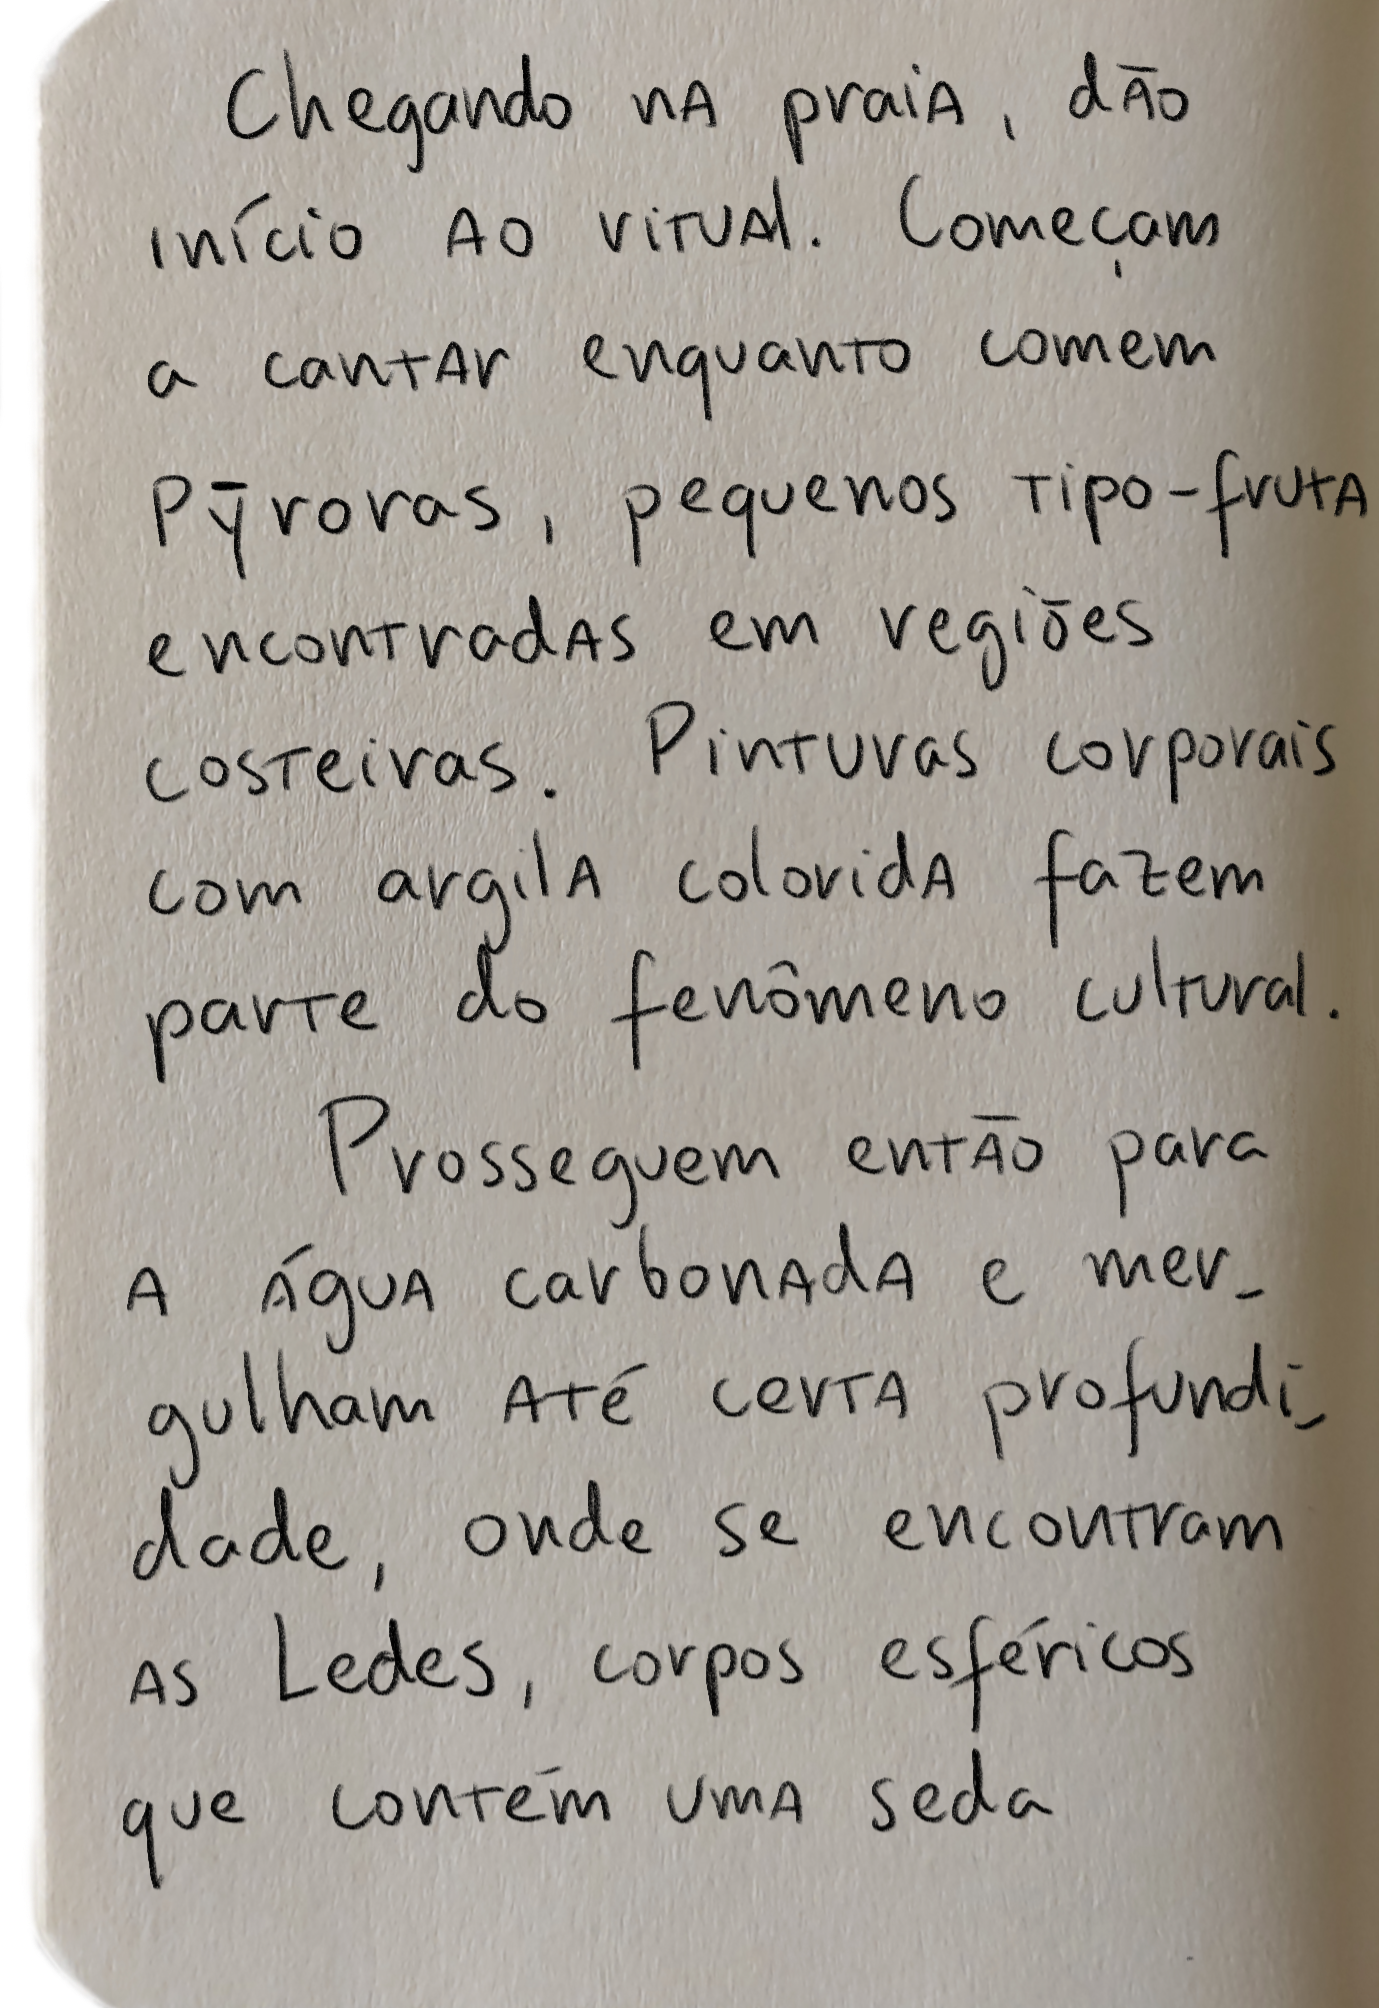 Chegando na praia, dão
início ao ritual. Começam
a cantar enquanto comem
Pỹroras, pequenos tipo-fruta
encontradas em regiões
costeiras. Pinturas corporais
com argila colorida fazem
parte do fenômeno cultural.
Prosseguem então para
a água carbonada e mer-
gulham até certa profundi-
dade, onde se encontram
as Ledes, corpos esféricos
que contém uma seda